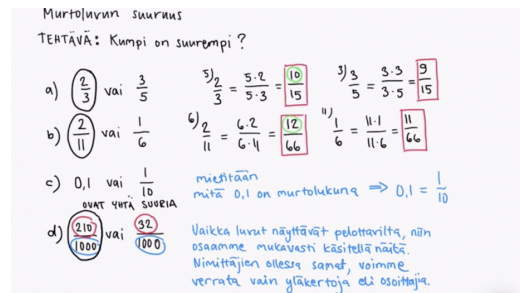 Murtoluvun suuruus
TEHTÄVÄ: Kumpi on suurempi?
a) 2/3 vai 3/5 5) 2/3 = 5·2/5·3 = 10/15 3) 3/5 = 3·3/3·5 = 9/15
b) 2/11 vai 1/6 6) 2/11 = 6·2/6·11 = 12/66 11) 1/6 = 11·1/11·6 = 11/66
c) 0,1 vai 1/10 mietitään mitä 0,1 on murtolukuna ⇒ 0,1 = 1/10
OVAT YHTÄ SUURIA
d) 210/1000 vai 32/1000
Vaikka luvut näyttävät pelottavilta, niin
osaamme mukavasti käsitellä näitä.
Nimittäjien ollessa samat, voimme
verrata vain yläkertoja eli osoittajia.